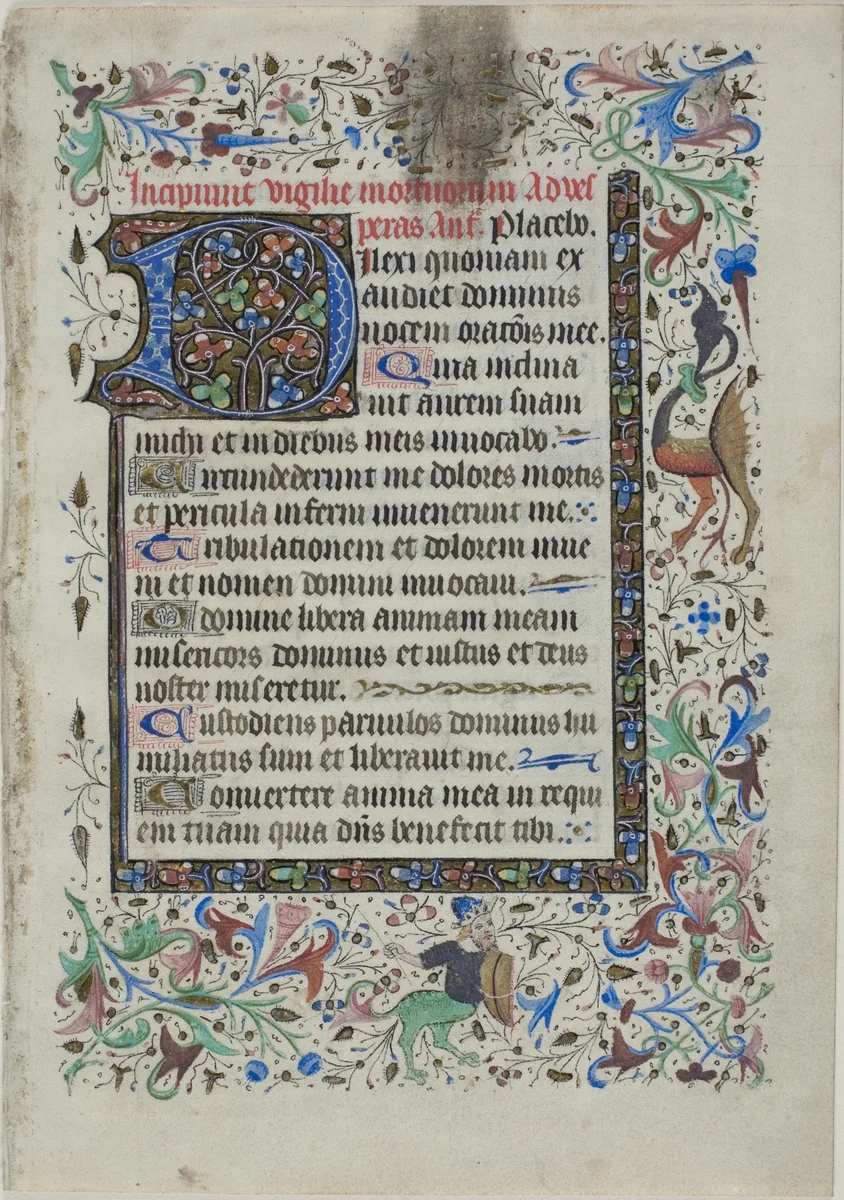 Incipiunt vigilie mortuorum Ad ves
peras Ant̄. Placebo.
Dilexi quoniam ex
audiet dominus
vocem orat̄ōis mee.
Quia inclina
uit aurem suam
michi et in diebus meis inuocabo.
Circundederunt me dolores mortis
et pericula inferni inuenerunt me.
Tribulationem et dolorem inue
ni et nomen domini inuocaui.
O domine libera animam meam
misericors dominus et iustus et deus
noster miseretur.
Custodiens paruulos dominus hu
miliatus sum et liberauit me.
Conuertere anima mea in requi
em tuam quia dn̄s benefecit tibi.